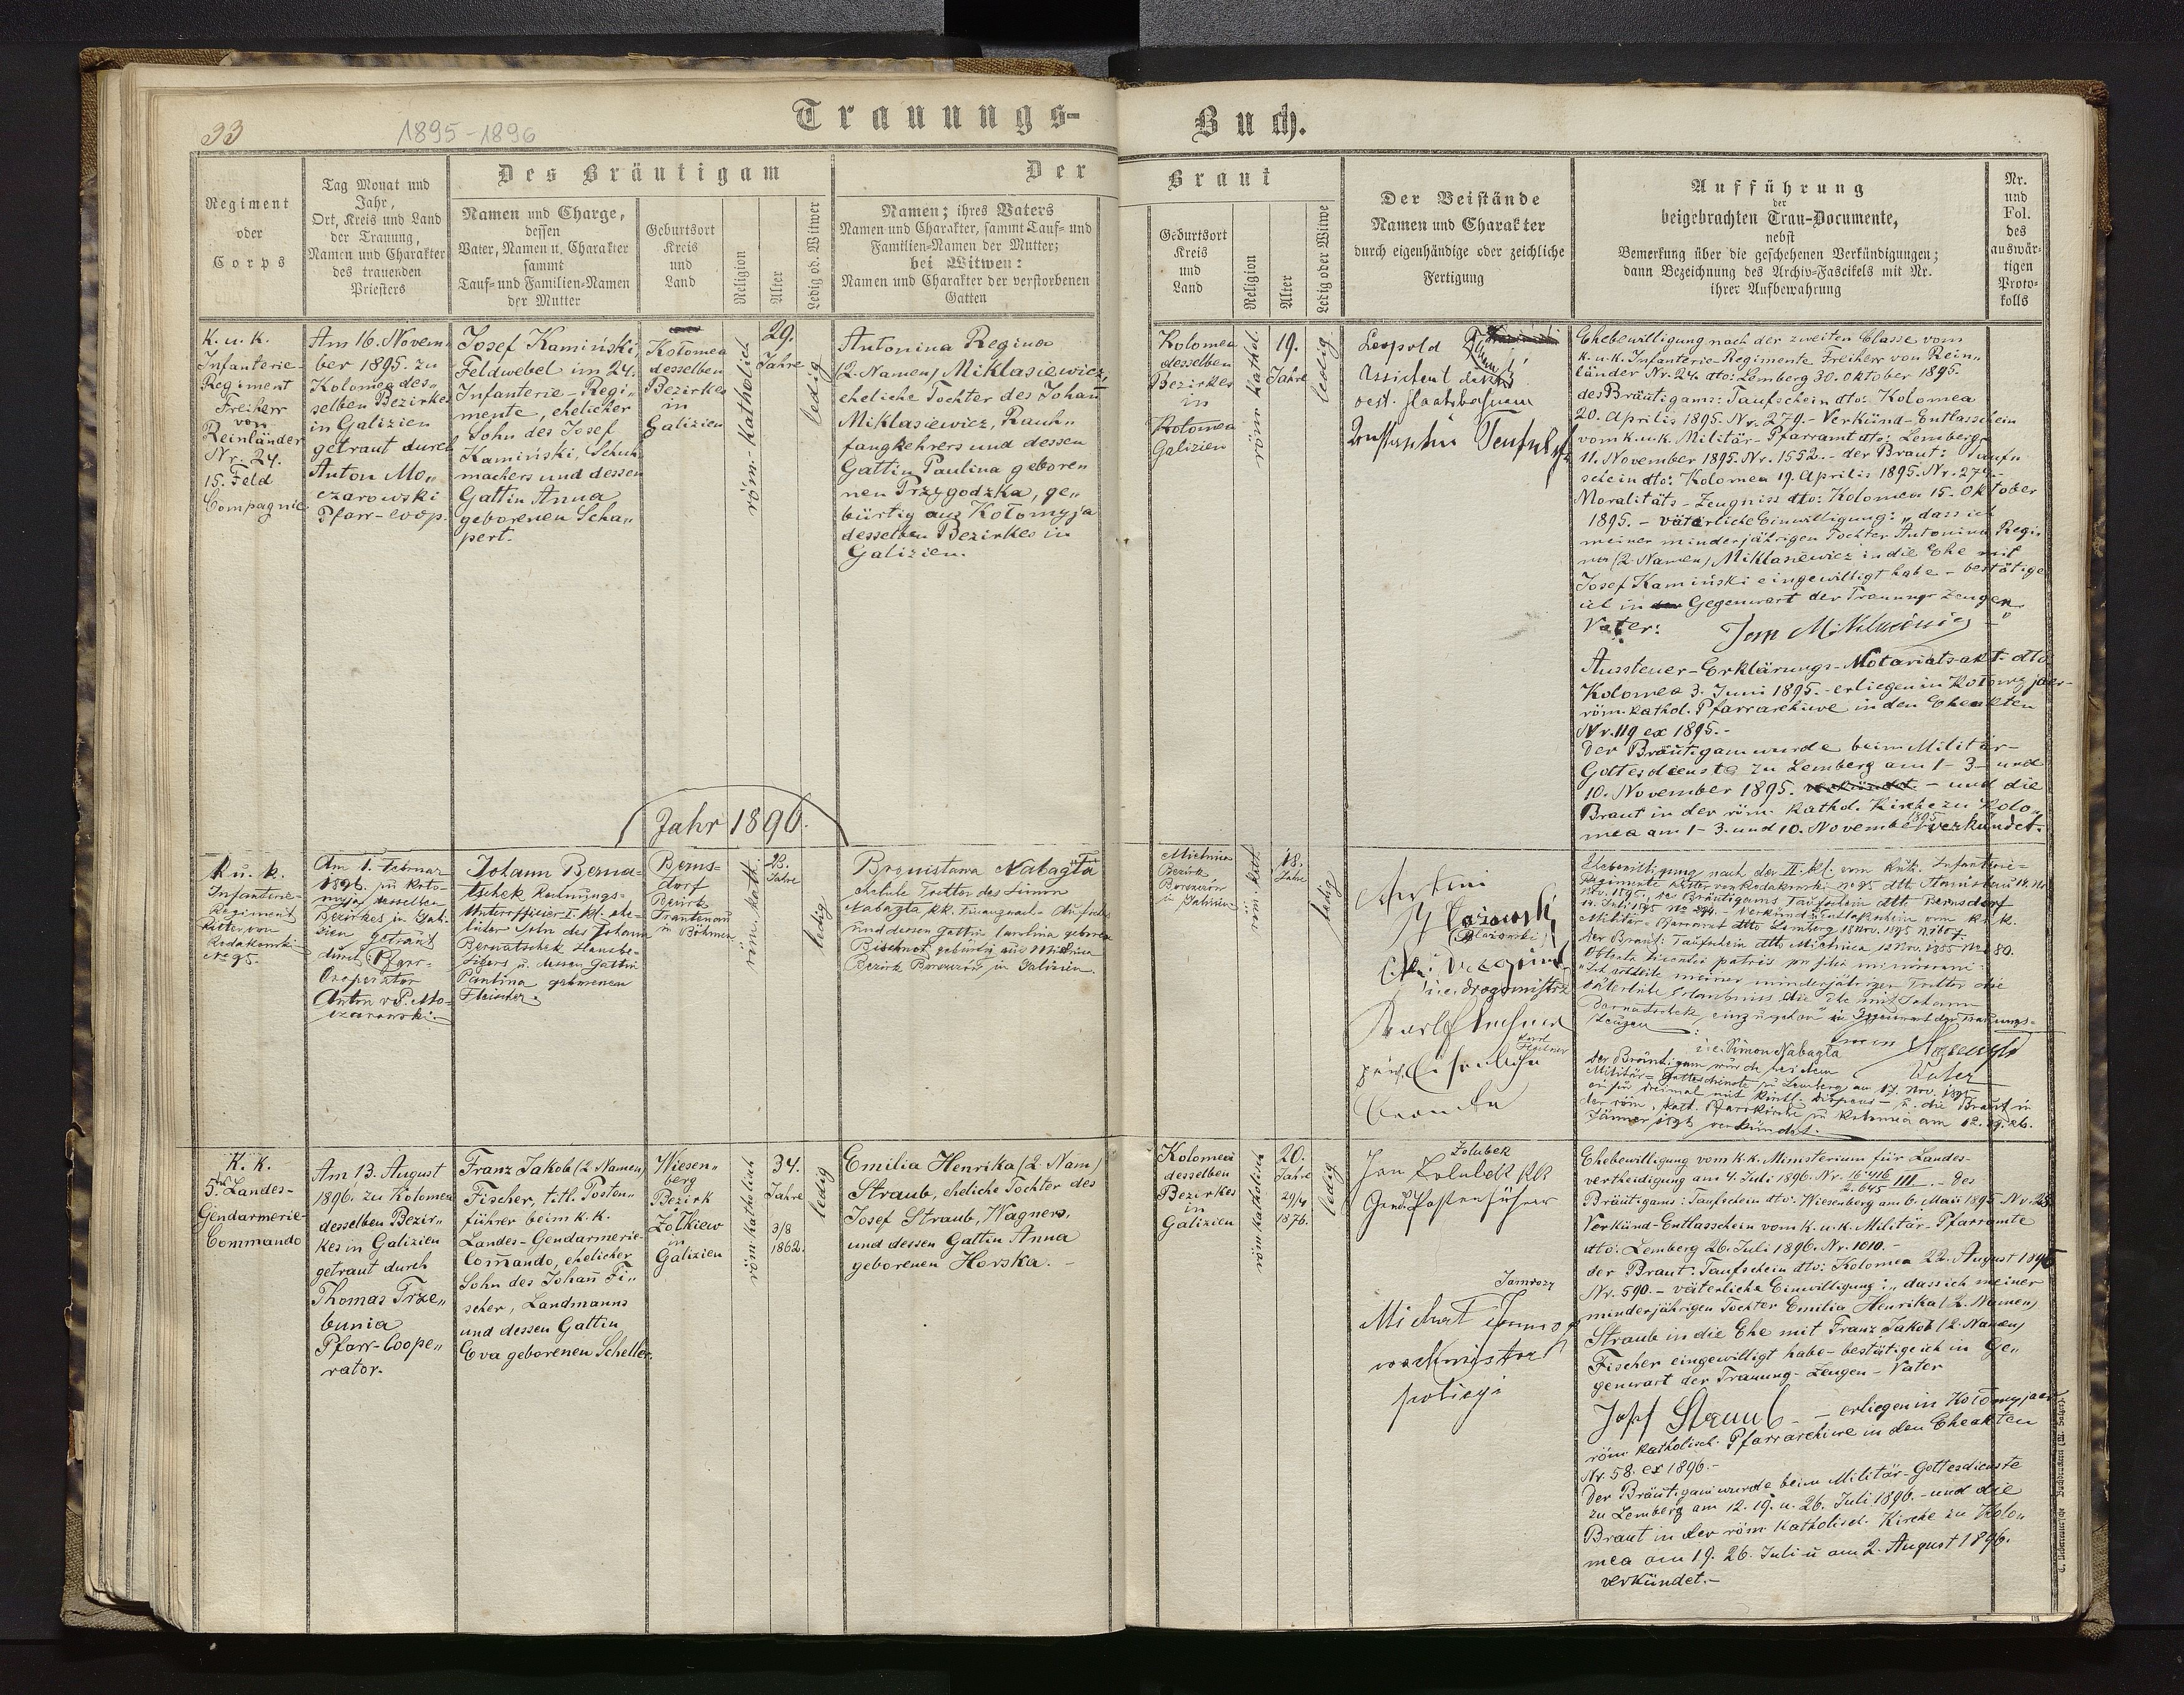 33
1895-1896
Trauungs-
Buch.
Regiment
oder
Corps
Tag Monat und
Jahr,
Ort, Kreis und Land
der Trauung,
Namen und Charakter
des trauenden
Priesters
Des Bräutigam
Namen und Charge,
dessen
Vater, Namen u. Charakter
sammt
Tauf- und Familien-Namen
der Mutter
Geburtsort
Kreis
und
Land
Religion
Alter
Ledig od. Witwer
Der
Namen; ihres Vaters
Namen und Charakter, sammt Tauf- und
Familien-Namen der Mutter;
bei Witwen:
Namen und Charakter der verstorbenen
Gatten
Braut
Geburtsort
Kreis
und
Land
Religion
Alter
Ledig oder Witwe
Der Beistände
Namen und Charakter
durch eigenhändige oder zeichliche
Fertigung
Aufführung
der
beigebrachten Trau-Documente,
nebst
Bemerkung über die geschehenen Verkündigungen;
dann Bezeichnung des Archiv-Fascikels mit Nr.
ihrer Aufbewahrung
Nr.
und
Fol.
des
auswär-
tigen
Proto-
kolls
K. u. k.
Infanterie-
Regiment
Freiherr
von
Reinländer
Nr. 24.
15. Feld
Compagnie
Am 16. Novem
ber 1895. zu
Kolomea des„
selben Bezirkes
in Galizien
getraut durch
Anton Mo„
czarowski
Pfarr-coop.
Josef Kamiński,
Feldwebel im 24.
Infanterie-Regi„
mente, ehelicher
Sohn des Josef
Kamiński, Schuh
machers und dessen
Gattin Anna
geborenen Scha„
pert.
Kołomea
desselben
Bezirkes
in
Galizien
röm.-katholich
29.
Jahre
ledig
Antonina Regina
(2. Namen) Miklasiewicz,
eheliche Tochter des Johan̄
Miklasiewicz, Rauch„
fangkehrers und dessen
Gattin Paulina geboren
nen Przygodzka, ge„
bürtig aus Kołomyja
desselben Bezirkes in
Galizien.
Kolomea
desselben
Bezirkes
in
Kolomea
Galizien
röm. kathol.
19.
Jahre
ledig
Leopold
Assistent
oest. Staatsbahnen
Ehebewilligung nach der zweiten Classe vom
k. u. k. Infanterie-Regimente Freiherr von Rein„
länder Nr. 24. dto: Lemberg 30. Oktober 1895.
des Bräutigams: Taufschein dto: Kolomea
20. Aprilis 1895. Nr. 279. - Verkünd-Entlasschein
vom k. u. k. Militär-Pfarramt dto: Lemberg
11. November 1895. Nr. 1552. - der Braut: Taufn
schein dto: Kolomea 19. Aprilis 1895. Nr. 279.-
Moralitäts-Zeugniss dto: Kolomea 15. Oktober
1895. - väterliche Einwilligung: „dass ich
meiner minderjährigen Tochter Antonina Regi„
na (2. Namen) Miklasiewicz in die Ehe mit
Josef Kamiński eingewilligt habe - bestätige
ich in der Gegenwart der Trauungs Zeugen
Vater:
Aussteuer-Erklärungs-Notariatsakt dto
Kolomea 3. Juni 1895. - erliegen in Kołomyjaer-
röm. kathol. Pfarrarchive in den Eheakten
Nr. 119 ex 1895.-
Der Bräutigam wurde beim Militär-
Gottesdienste zu Lemberg am 1- 3- und
10. November 1895. verkündet - und die
Braut in der röm. kathol. Kirche zu Kolo„
mea am 1- 3. und 10. November 1895 verkündet.
Jahr 1896.
K. u. k.
Infanterie-
Regiment
Ritter von
Rodakowski
No 95.
Am 1. Februar
1896. zu Koło-
myja desselben
Bezirkes in Gali-
zien getraut
durch Pfarr-
Cooperator
Anton v P. Mo-
czarowski.
Johann Berna-
tschek Rechnungs-
Unterofficier I. Kl. ehe-
licher Sohn des Johann
Bernatschek Hausbe-
sitzers u. dessen Gattin
Paulina geborenen
Fleischer.
Berns-
dorf
Bezirk
Trautenau
in Böhmen
röm. kath.
Jahre
ledig
Bronisława Nabagła
eheliche Tochter des Simon
Nabagła k.k. Finanzwach-Aufsehers
und dessen Gattin Carolina geboren
gebürtig aus Mielnica
Bezirk Borszczów in Galizien
Mielnica
Bezirk
Borszczów
in Galizien
röm. kath
18.
Jahre
ledig
(Błażowski)
i.e. drogomistrz
Ehebewilligung nach der II. Kl. vom k.u.k. Infanterie-
Regimente Ritter von Rodakowski No 95
des Bräutigams Taufschein dtto Bernsdorf
Militär-Pfarramt dtto Lemberg
der Braut: Taufschein dtto Mielnica 12 Nov. 1895 No 80.
„Ich ertheile meiner minderjährigen Tochter die
väterliche Erlaubniss die Ehe mit Johann
Bernatschek einzugehen" in Gegenwart der Trauungs-
Zeugen
i.e. Simon Nabagła
Vater
der Bräutigam wurde bei dem
Militär-Gottesdienste zu Lemberg am 17. Nov. 1895
ein für dreimal mit kirchl. Dispens - u. die Braut in
der röm. kath. Pfarrkirche zu Kolomea am 12. 19. 26.
Jänner 1896 verkündet.
K. k.
5. Landes-
Gendarmerie-
Commando
Am 13. August
1896. zu Kolomea
desselben Bezir„
kes in Galizien
getraut durch
Thomas Trze„
bunia
Pfarr-Coope„
rator.
Franz Jakob (2 Namen)
Fischer, titl. Posten„
führer beim k. k.
Landes-Gendarmerie-
Com̄ando, ehelicher
Sohn des Johan̄ Fi-
scher, Landmanns
und dessen Gattin
Eva geborenen Scheller.
Wiesen„
berg
Bezirk
Żółkiew
in
Galizien
röm katholich
34.
Jahre
3/8
1862.
ledig
Emilia Henrika (2. Nam)
Straub, eheliche Tochter des
Josef Straub, Wagners,
und dessen Gattin Anna
geborenen Horska. -
Kolomea
desselben
Bezirkes
in
Galizien
röm katholisch
20.
Jahre
29/4
1876.
ledig
Zolubek
Jan Zolubek KK
Gend. Postenführer
Jamrozy
Michał Jamrozy
wachmistrz
policyi
Ehebewilligung vom k.k. Ministerium für Landes-
vertheidigung am 4. Juli 1896. Nr. 16.416/2.645 III. - des
Bräutigams: Taufschein dto: Wiesenberg am 6. Mai 1895. Nr. 28
Verkünd-Entlasschein vom k. u. k. Militär-Pfarramte
dto: Lemberg 26. Juli 1896. Nr. 1010.-
der Braut: Taufschein dto: Kolomea 22. August 1895
Nr. 590. - väterliche Einwilligung: „dass ich meiner
minderjährigen Tochter Emilia Henrika (2. Namen)
Straub in die Ehe mit Franz Jakob (2. Namen)
Fischer eingewilligt habe - bestätige ich in Ge„
genwart der Trauung-Zeugen - Vater
Josef Straub - erliegen in Kołomyjaer
röm. katholisch. Pfarrarchive in den Eheakten
Nr. 58. ex 1896.-
Der Bräutigam wurde beim Militär-Gottesdienste
zu Lemberg am 12. 19. u. 26. Juli 1896. - und die
Braut in der röm. katholisch. Kirche zu Kolo„
mea am 19. 26. Juli u am 2. August 1896.
verkündet.-